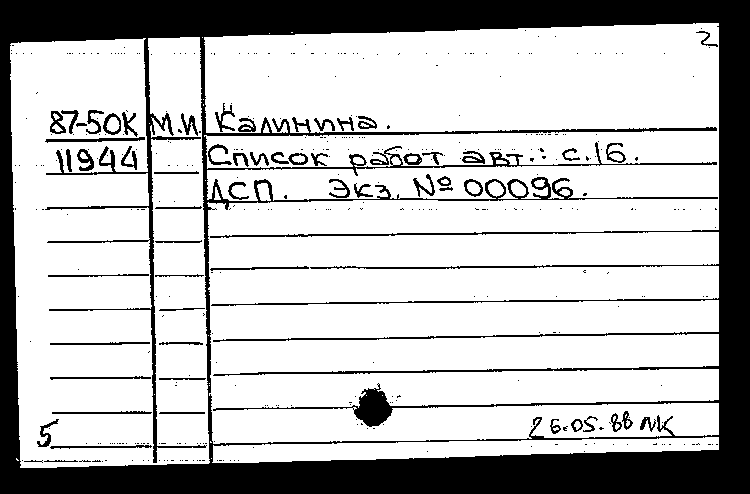 2
87-50К М.И. Калинина.
11944 Список работ авт.: с.16.
ДСП. Экз. № 00096.
5
26.05.88 МК